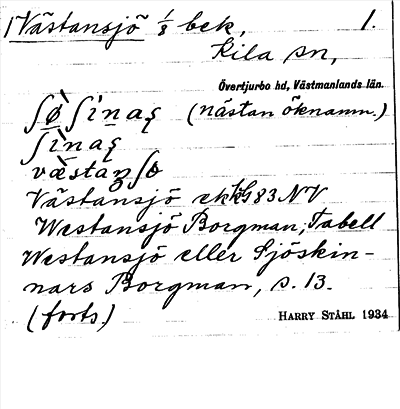 1 Västansjö 1/8 bek, 1.
Kila sn,
Övertjurbo hd, Västmanlands län.
(nästan öknamn.)
västan
Västansjö ekkG83NV
Westansjö Borgman, Tabell
Westansjö eller Sjöskin-
nars Borgman, s. 13.
(forts.)
HARRY STÅHL 1934